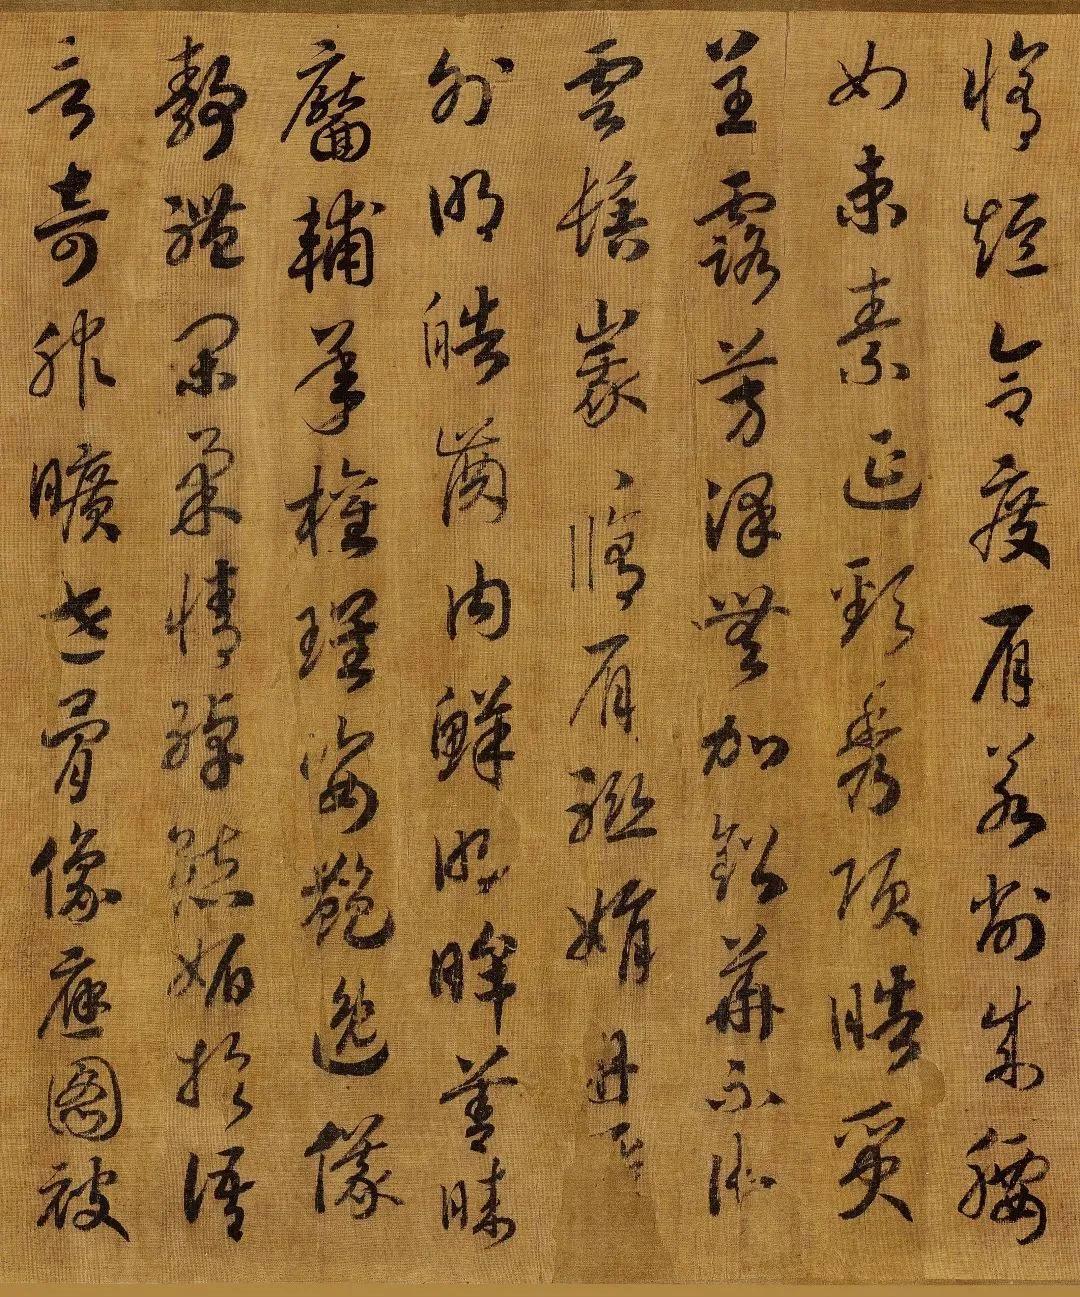 脩短合度肩若削成腰
如束素延頸秀項皓質
呈露芳澤無加鉛華不御
雲髻峩〻脩眉聯娟丹
外朗皓齒内鮮明眸善睞
靨輔承權瓌姿艷逸儀
靜體閑柔情綽態媚於語
言奇服曠世骨像應圖被